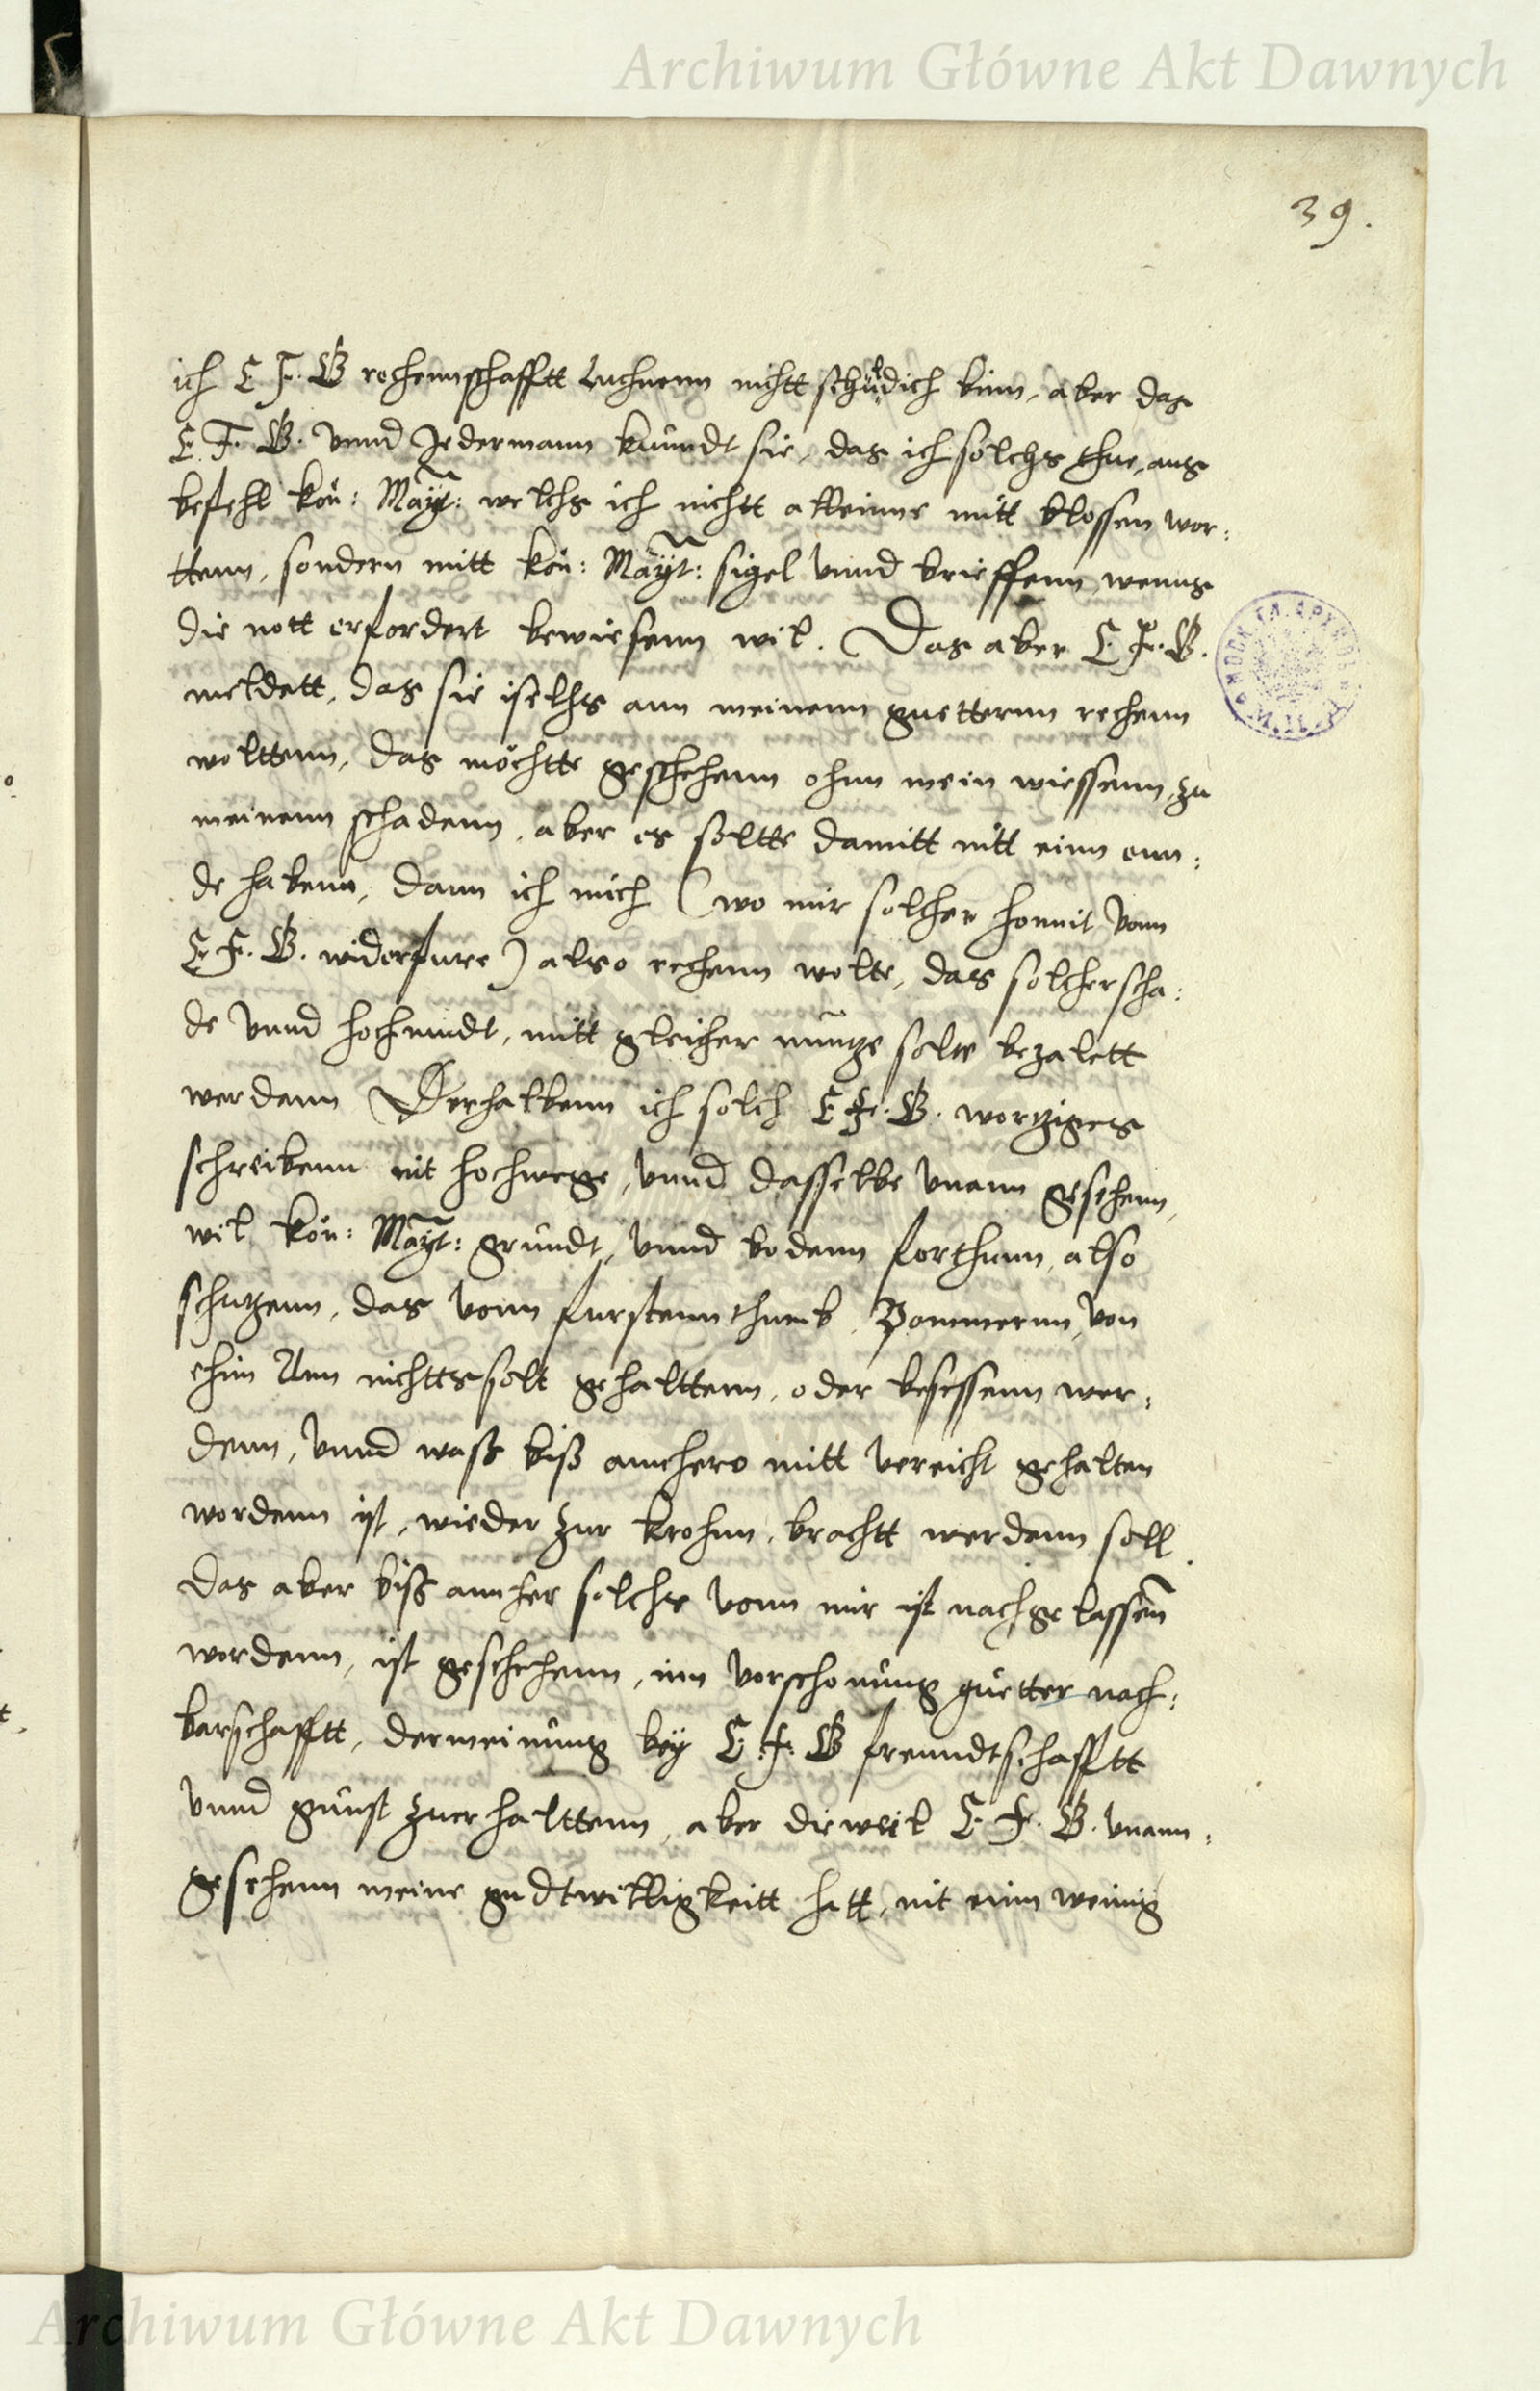 Archiwum Główne Akt Dawnych
39.
ich E F. G rechennschafftt zuthuenn nichtt schuldich binn, aber das
E. F. G. vnnd Jedermann kundt sie, das ich solchs thue, aus
befehl kön: Maÿt: welchs ich nichtt alleinne mitt blossen wor:
ttenn, sondern mitt kön: Maÿt: sigel vnnd brieffenn wenns
die nott erfordert bewiesenn wil. Das aber E. F. G.
meldett, das sie iselchs ann meinenn guetternn rechenn
wolttenn, das möchtte geschehenn ohnn mein wiessenn, zu
meinenn schadenn, aber es soltte damitt nitt einn enn:
de habenn, dann ich mich (wo mir solcher homut vonn
E. F. G. widerfure) also rechenn wolte, das solcher scha:
de vnnd hochmudt, mitt gleicher muntze solte bezalett
werdenn Derhalbenn ich solch E F. G. wortziges
schreibenn nit hochwege, vnnd dasselbe vnann gesehenn,
wil kön: Maÿt: grundt, vnnd bodenn forthunn, also
schutzenn, das vonn furstennthumb, Pommernn, von
ehim Ann nichtts solt gehalttenn, oder besessenn wer:
denn, vnnd waß biß annhero mitt vnreicht gehalten
wordenn ist, wieder zur krohnn, brachtt werdenn soll.
Das aber biß annher solchs vonn mir ist nachgelassen
wordenn, ist geschehenn, inn vorschonung guetter nach:
barschafftt, der meinung beÿ E. F. G freundtschafftt
vnnd gunst zuerhalttenn, aber dieweil E. F. G. vnann:
gesehenn meine gudtwilligkeitt hatt, nit einn wenig
Archiwum Główne Akt Dawnych